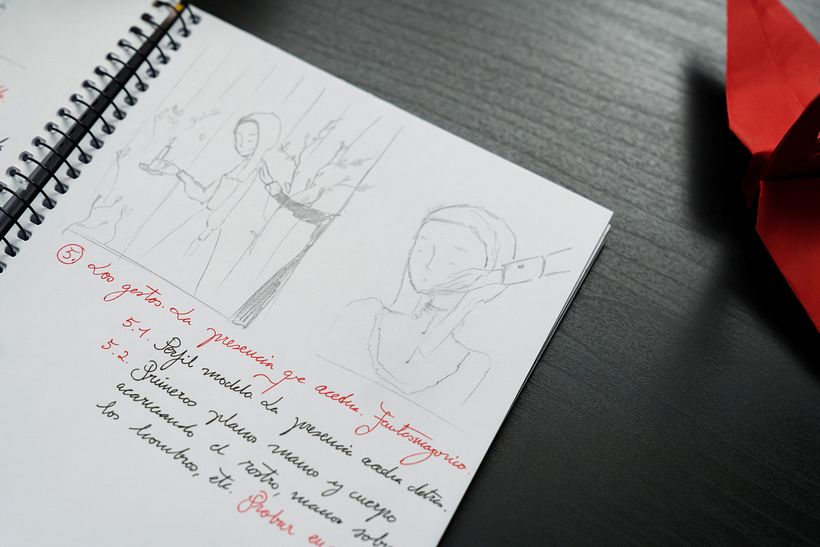 5. Los gestos. La presencia qe acecha. Fantasmagorico.
5.1. Perfil modelo. La presencia acecha detras.
5.2. Primeros planos manos y cuerpo
acariciando el rostro, manos sobre
los hombros, etc. Probar en